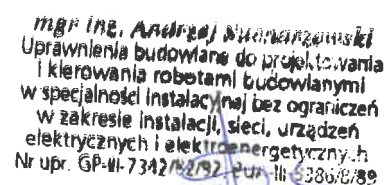 mgr inż. Andrzej
Uprawnienia budowlane do projektowania
i kierowania robotami budowlanymi
w specjalności instalacyjnej bez ograniczeń
w zakresie instalacji, sieci, urządzeń
elektrycznych i elektroenergetycznych
Nr upr. GP-III-7342